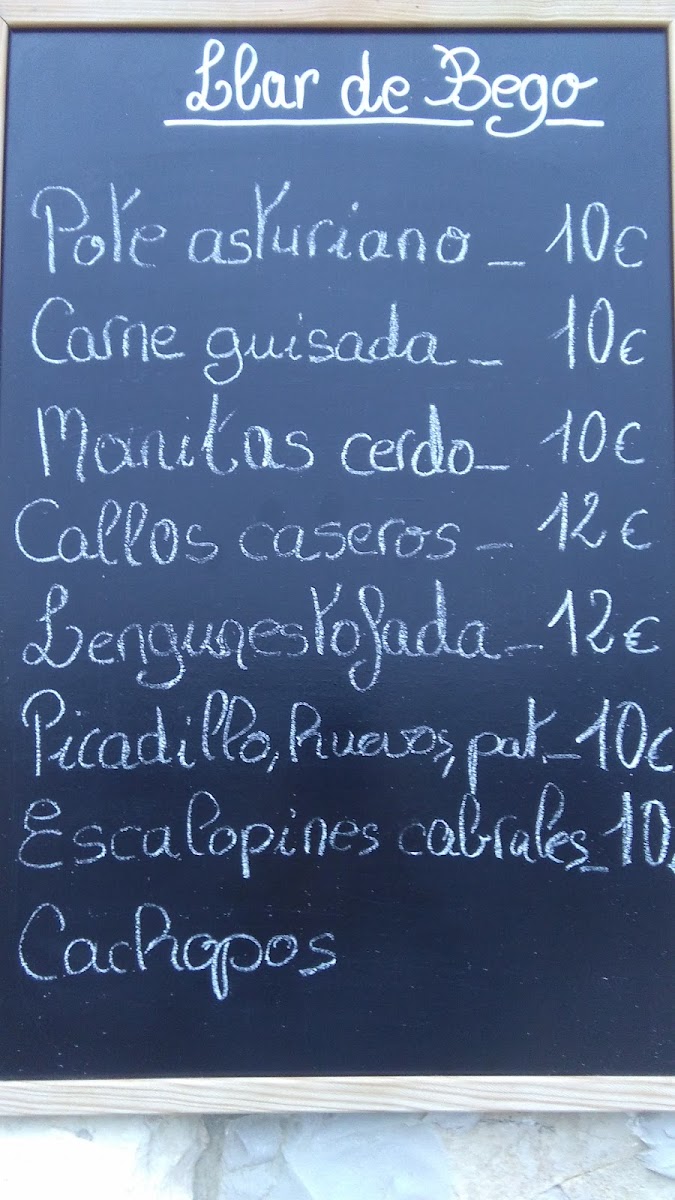 Llar de Bego
Pote asturiano - 10€
Carne guisada - 10€
Manitas cerdo - 10€
Callos caseros - 12€
Lenguaestofada - 12€
Picadillo, huevos, pat. - 10€
Escalopines cabrales - 10
Cachopos